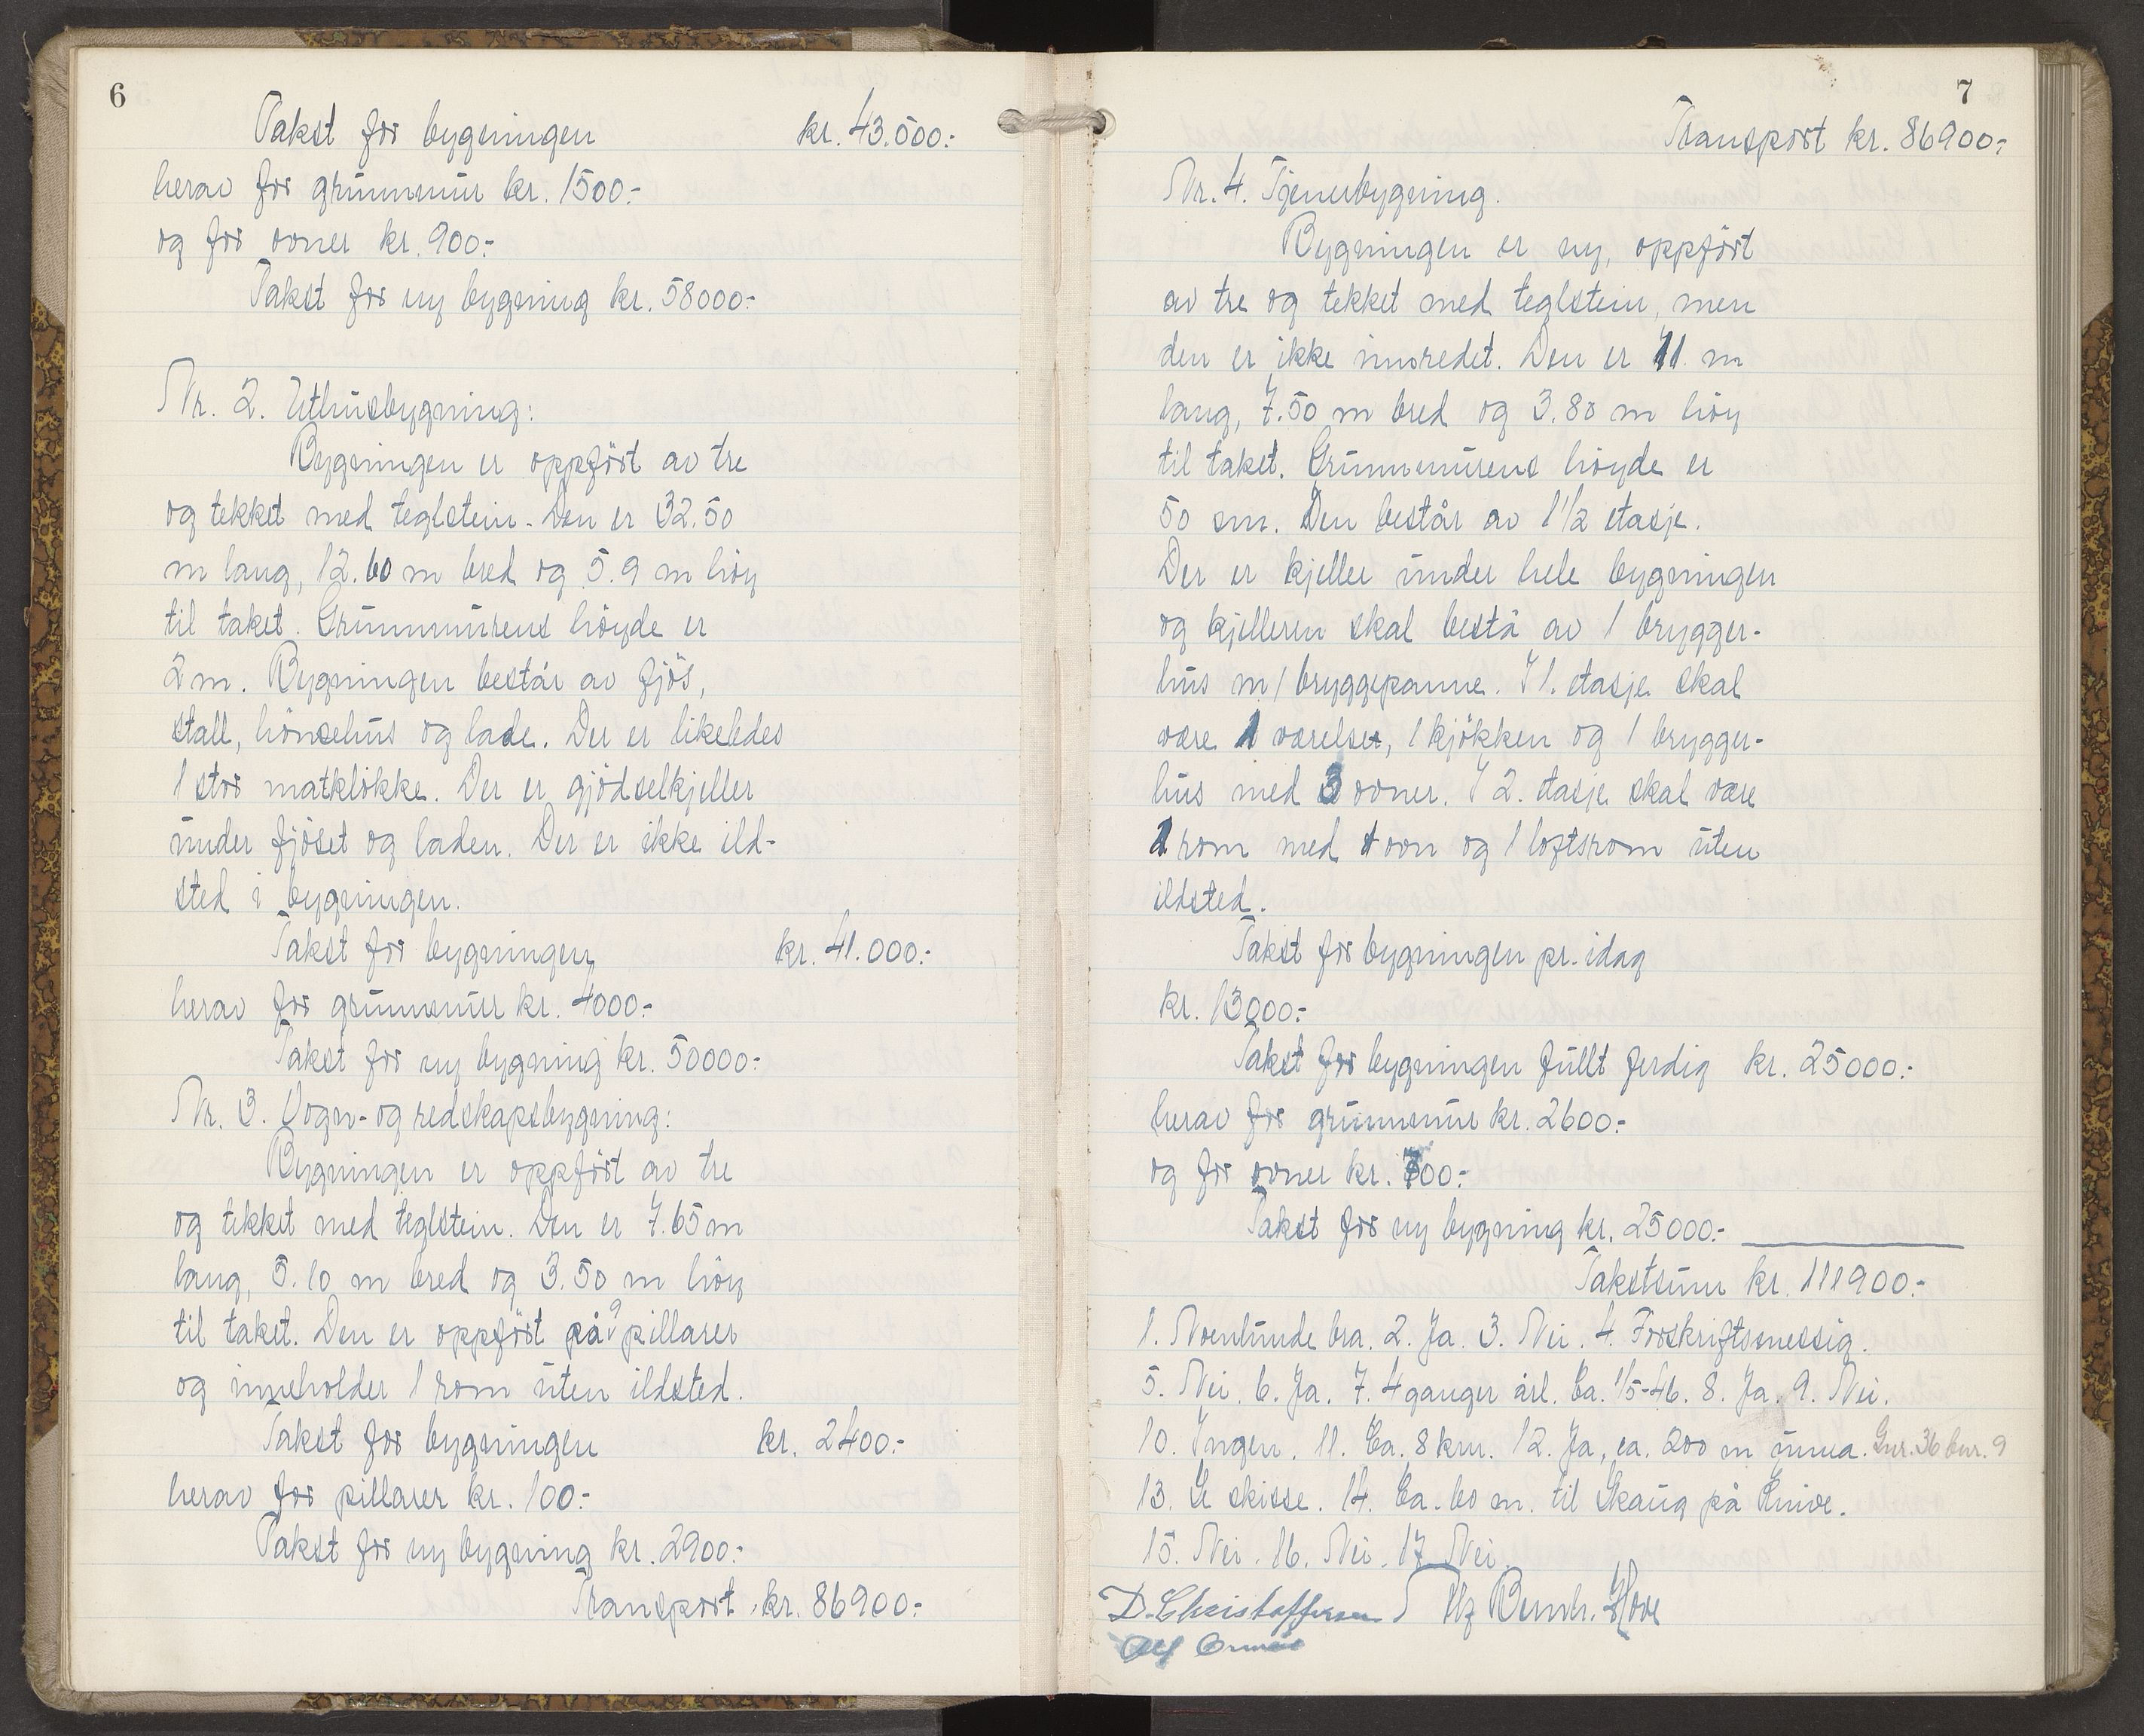 6
Takst for bygningen kr. 43.500:-
herav for grunnmur kr. 1500:-
og for ovner kr. 900:-
Takst for ny bygning kr. 58000:-
Nr. 2. Uthusbygning:
Bygningen er oppført av tre
og tekket med teglstein. Den er 32.50
m lang, 12.60 m bred og 5.9 m høy
til taket. Grunnmurens høyde er
2 m. Bygningen består av fjøs,
stall, hønsehus og lade. Der er likeledes
1 stor matklokke. Der er gjødselkjeller
under fjøset og laden. Der er ikke ild-
sted i bygningen.
Takst for bygningen kr. 41.000:-
herav for grunnmur kr. 4000:-
Takst for ny bygning kr. 50000:-
Nr. 3. Vogn- og redskapsbygning:
Bygningen er oppført av tre
og tekket med teglstein. Den er 7.65 m
lang, 5.10 m bred og 3.50 m høy
til taket. Den er oppført på 9 pillarer
og inneholder 1 rom uten ildsted.
Takst for bygningen kr. 2400:-
herav for pillarer kr. 100:-
Takst for ny bygning kr. 2900:-
Transport kr. 86900:-
7
Transport kr. 86900:-
Nr. 4. Tjenerbygning.
Bygningen er ny, oppført
av tre og tekket med teglstein, men
den er ikke innredet. Den er 11 m
lang, 7.50 m bred og 3.80 m høy
til taket. Grunnmurens høyde er
50 sm. Den består av 1 1/2 etasje.
Der er kjeller under hele bygningen
og kjelleren skal bestå av 1 brygger-
hus m/ bryggepanne. I 1. etasje skal
være 1 værelset, 1 kjøkken og 1 brygger-
hus med 3 ovner. I 2. etasje skal være
1 rom med 1 ovn og 1 loftsrom uten
ildsted.
Takst for bygningen pr. idag
kr. 13000:-
Takst for bygningen fullt ferdig kr. 25000:-
herav for grunnmur kr. 2600:-
og for ovner kr. 700:-
Takst for ny bygning kr. 25000:-
Takstsum kr. 111900:-
1. Noenlunde bra. 2. Ja. 3. Nei. 4. Forskriftsmessig.
5. Nei. 6. Ja. 7. 4 ganger årl. Ca. 1/5-46. 8. Ja. 9. Nei.
10. Ingen. 11. Ca. 8 km. 12. Ja, ca. 200 m unna. Gnr. 36 bnr. 9
13. Se skisse. 14. Ca. 60 m. til Skaug på Knive.
15. Nei. 16. Nei. 17. Nei.
D. Christoffersen Bernh. Hove
Alf